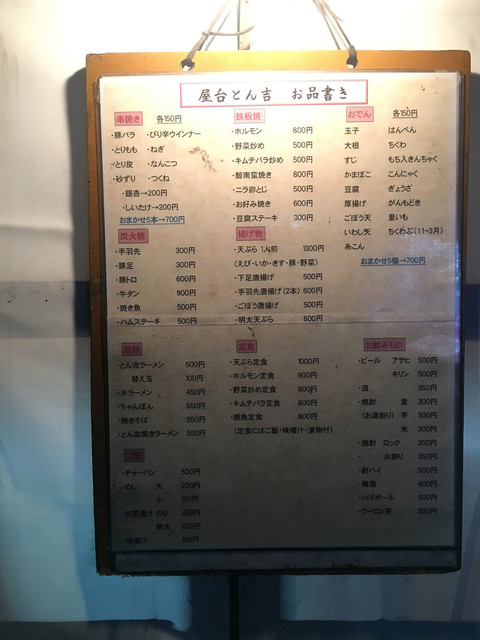 屋台とん吉 お品書き
串焼き 各150円
・豚バラ ・ぴり辛ウインナー
・とりもも ・ねぎ
・とり皮 ・なんこつ
・砂ずり ・つくね
・銀杏→200円
・しいたけ→200円
おまかせ5本→700円
炭火焼
・手羽先 300円
・豚足 300円
・豚トロ 600円
・牛タン 900円
・焼き魚 500円
・ハムステーキ 500円
麺類
・とん吉ラーメン 500円
替え玉 100円
・半ラーメン 450円
・ちゃんぽん 550円
・焼きそば 550円
・とん吉焼きラーメン 550円
ご飯
・チャーハン 500円
・めし 大 200円
小 150円
・お茶漬け のり 350円
明太 600円
味噌汁
鉄板焼
・ホルモン 800円
・野菜炒め 500円
・キムチバラ炒め 500円
・鯨南蛮焼き 800円
・ニラ卵とじ 500円
・お好み焼き 600円
・豆腐ステーキ 300円
揚げ物
・天ぷら 1人前 1300円
(えび・いか・きす・豚・野菜)
・下足唐揚げ 500円
・手羽先唐揚げ(2本) 600円
・ごぼう唐揚げ 500円
・明太天ぷら 600円
定食
・天ぷら定食 1000円
・ホルモン定食 900円
・野菜炒め定食 800円
・キムチバラ定食 800円
・焼魚定食 800円
(定食にはご飯・味噌汁・漬物付)
おでん 各150円
玉子 はんぺん
大根 ちくわ
すじ もち入きんちゃく
かまぼこ こんにゃく
豆腐 ぎょうざ
厚揚げ がんもどき
ごぼう天 里いも
いわし天 ちくわぶ(11~3月)
糸こん
おまかせ5個→700円
お飲みもの
・ビール アサヒ 500円
キリン 500円
・酒 350円
・焼酎 麦 300円
(お湯割り) 芋 300円
米 300円
・焼酎 ロック 350円
・ 水割り 350円
・酎ハイ 500円
・梅酒 400円
・ハイボール 500円
・ウーロン茶 300円